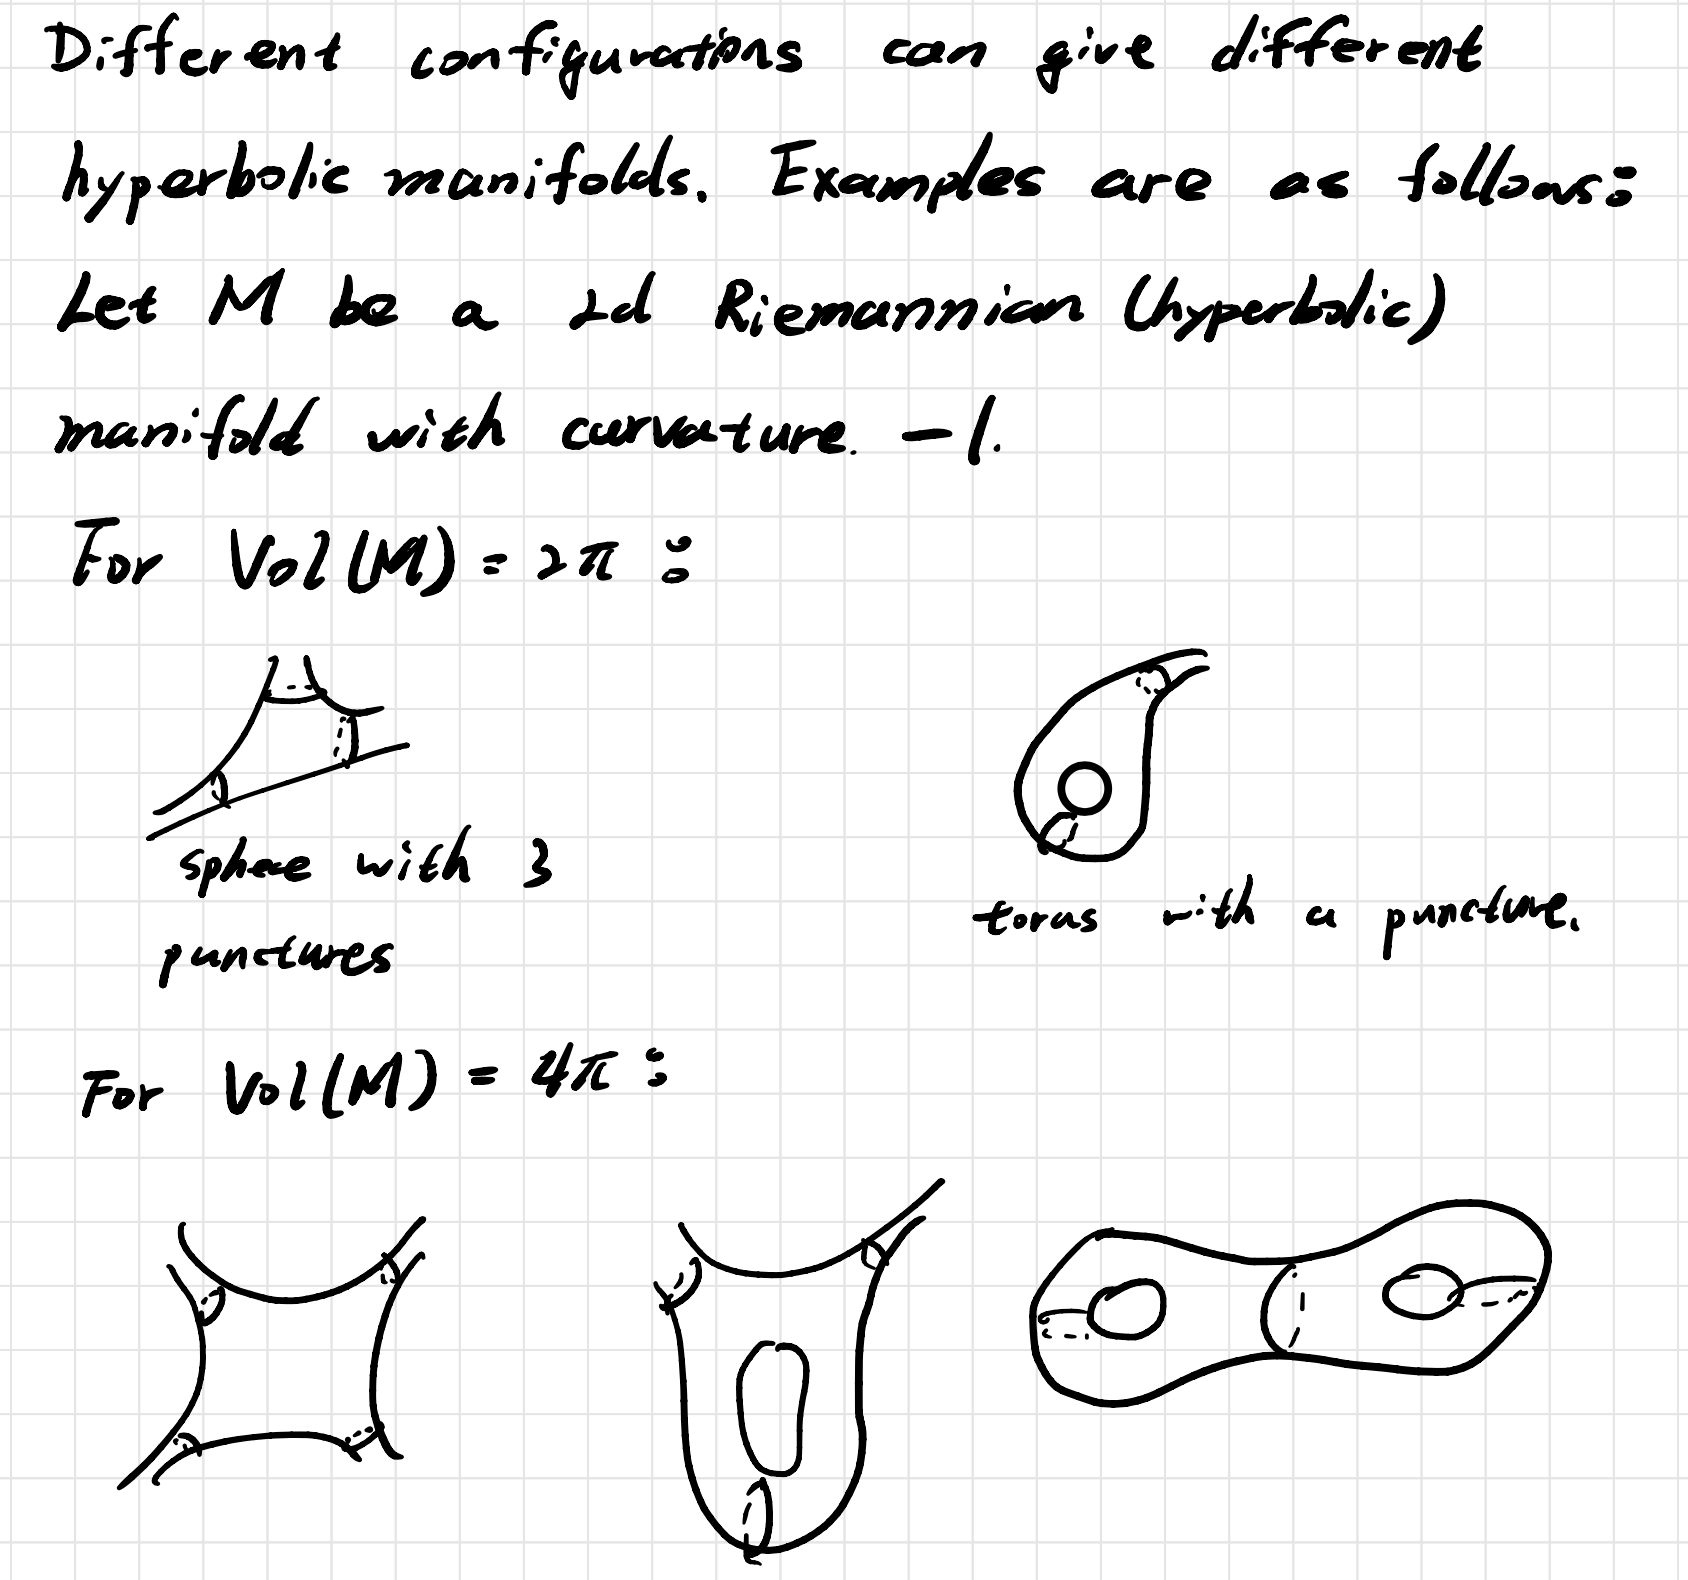 Different configurations can give different
hyperbolic manifolds. Examples are as follows:
Let M be a 2d Riemannian (hyperbolic)
manifold with curvature. -1.
For Vol(M) = 2π :
sphere with 3
punctures
torus with a puncture.
For Vol(M) = 4π :